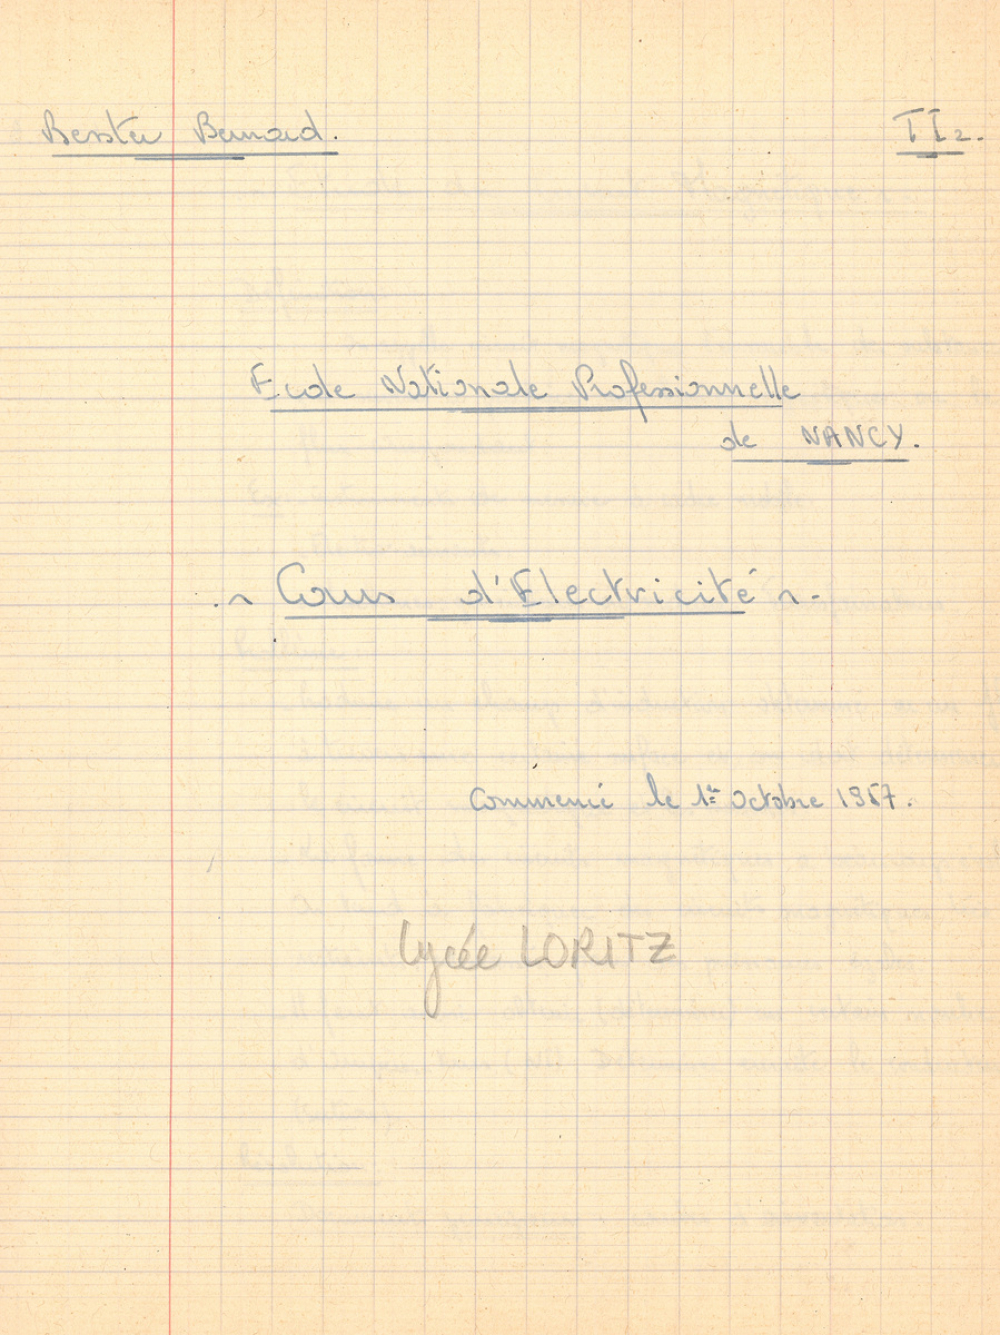 Bernard. TI2.
Ecole Nationale Professionnelle
de NANCY.
.~ Cours d'Electricité ~.
Commencé le 1er Octobre 1957.
Lycée LORITZ